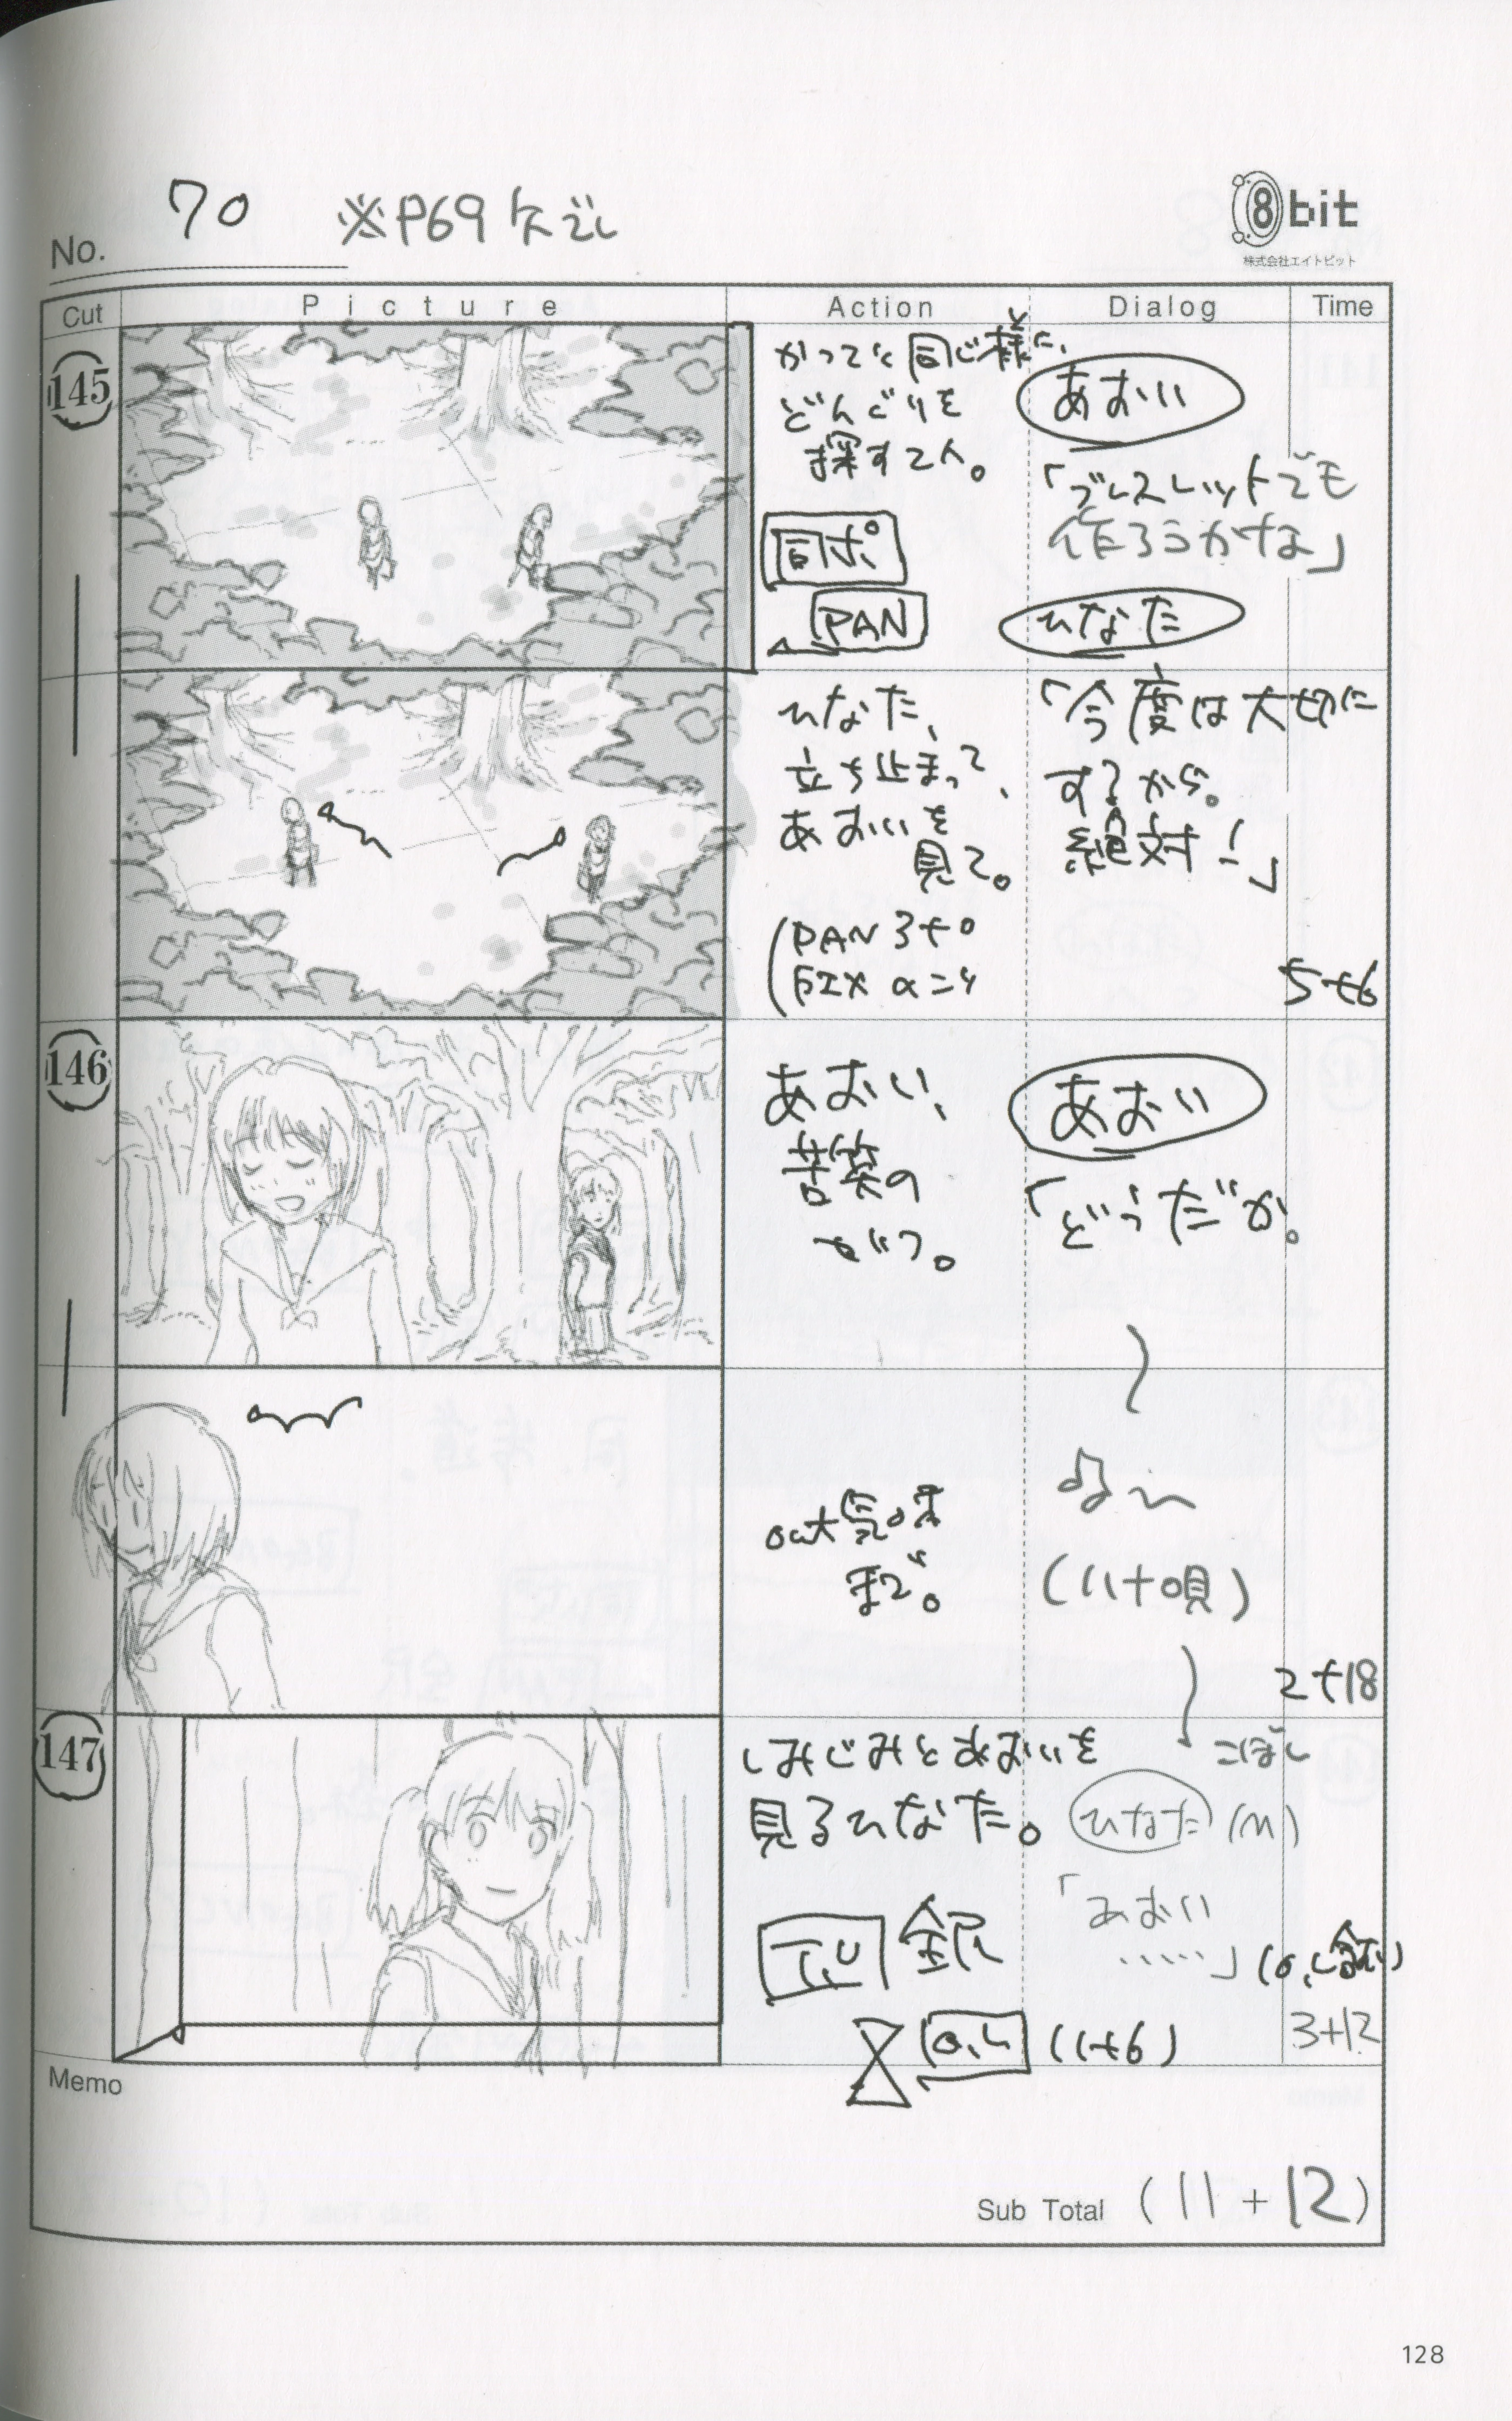 No. 70 ※P69 欠ごし
8bit
株式会社エイトビット
Cut Picture Action Dialog Time
145
かつてと同じ様に、
どんぐりを
探す2人。
同ポ
PAN
あおい
「ブレスレットでも
作ろうかな」
ひなた
ひなた、
立ち止まって、
あおいを
見て。
(PAN 3+0
FIX α=4
「今度は大切に
するから。
絶対!」
5+6
146
あおい、
苦笑の
あおい
「どうだか。
out気味
まで。
(ハナ唄)
2+18
147
しみじみとあおいを
見るひなた。
T.U
O.L (1+6)
こぼし
ひなた (M)
「あおい
……」
3+12
Memo
Sub Total (11+12)
128